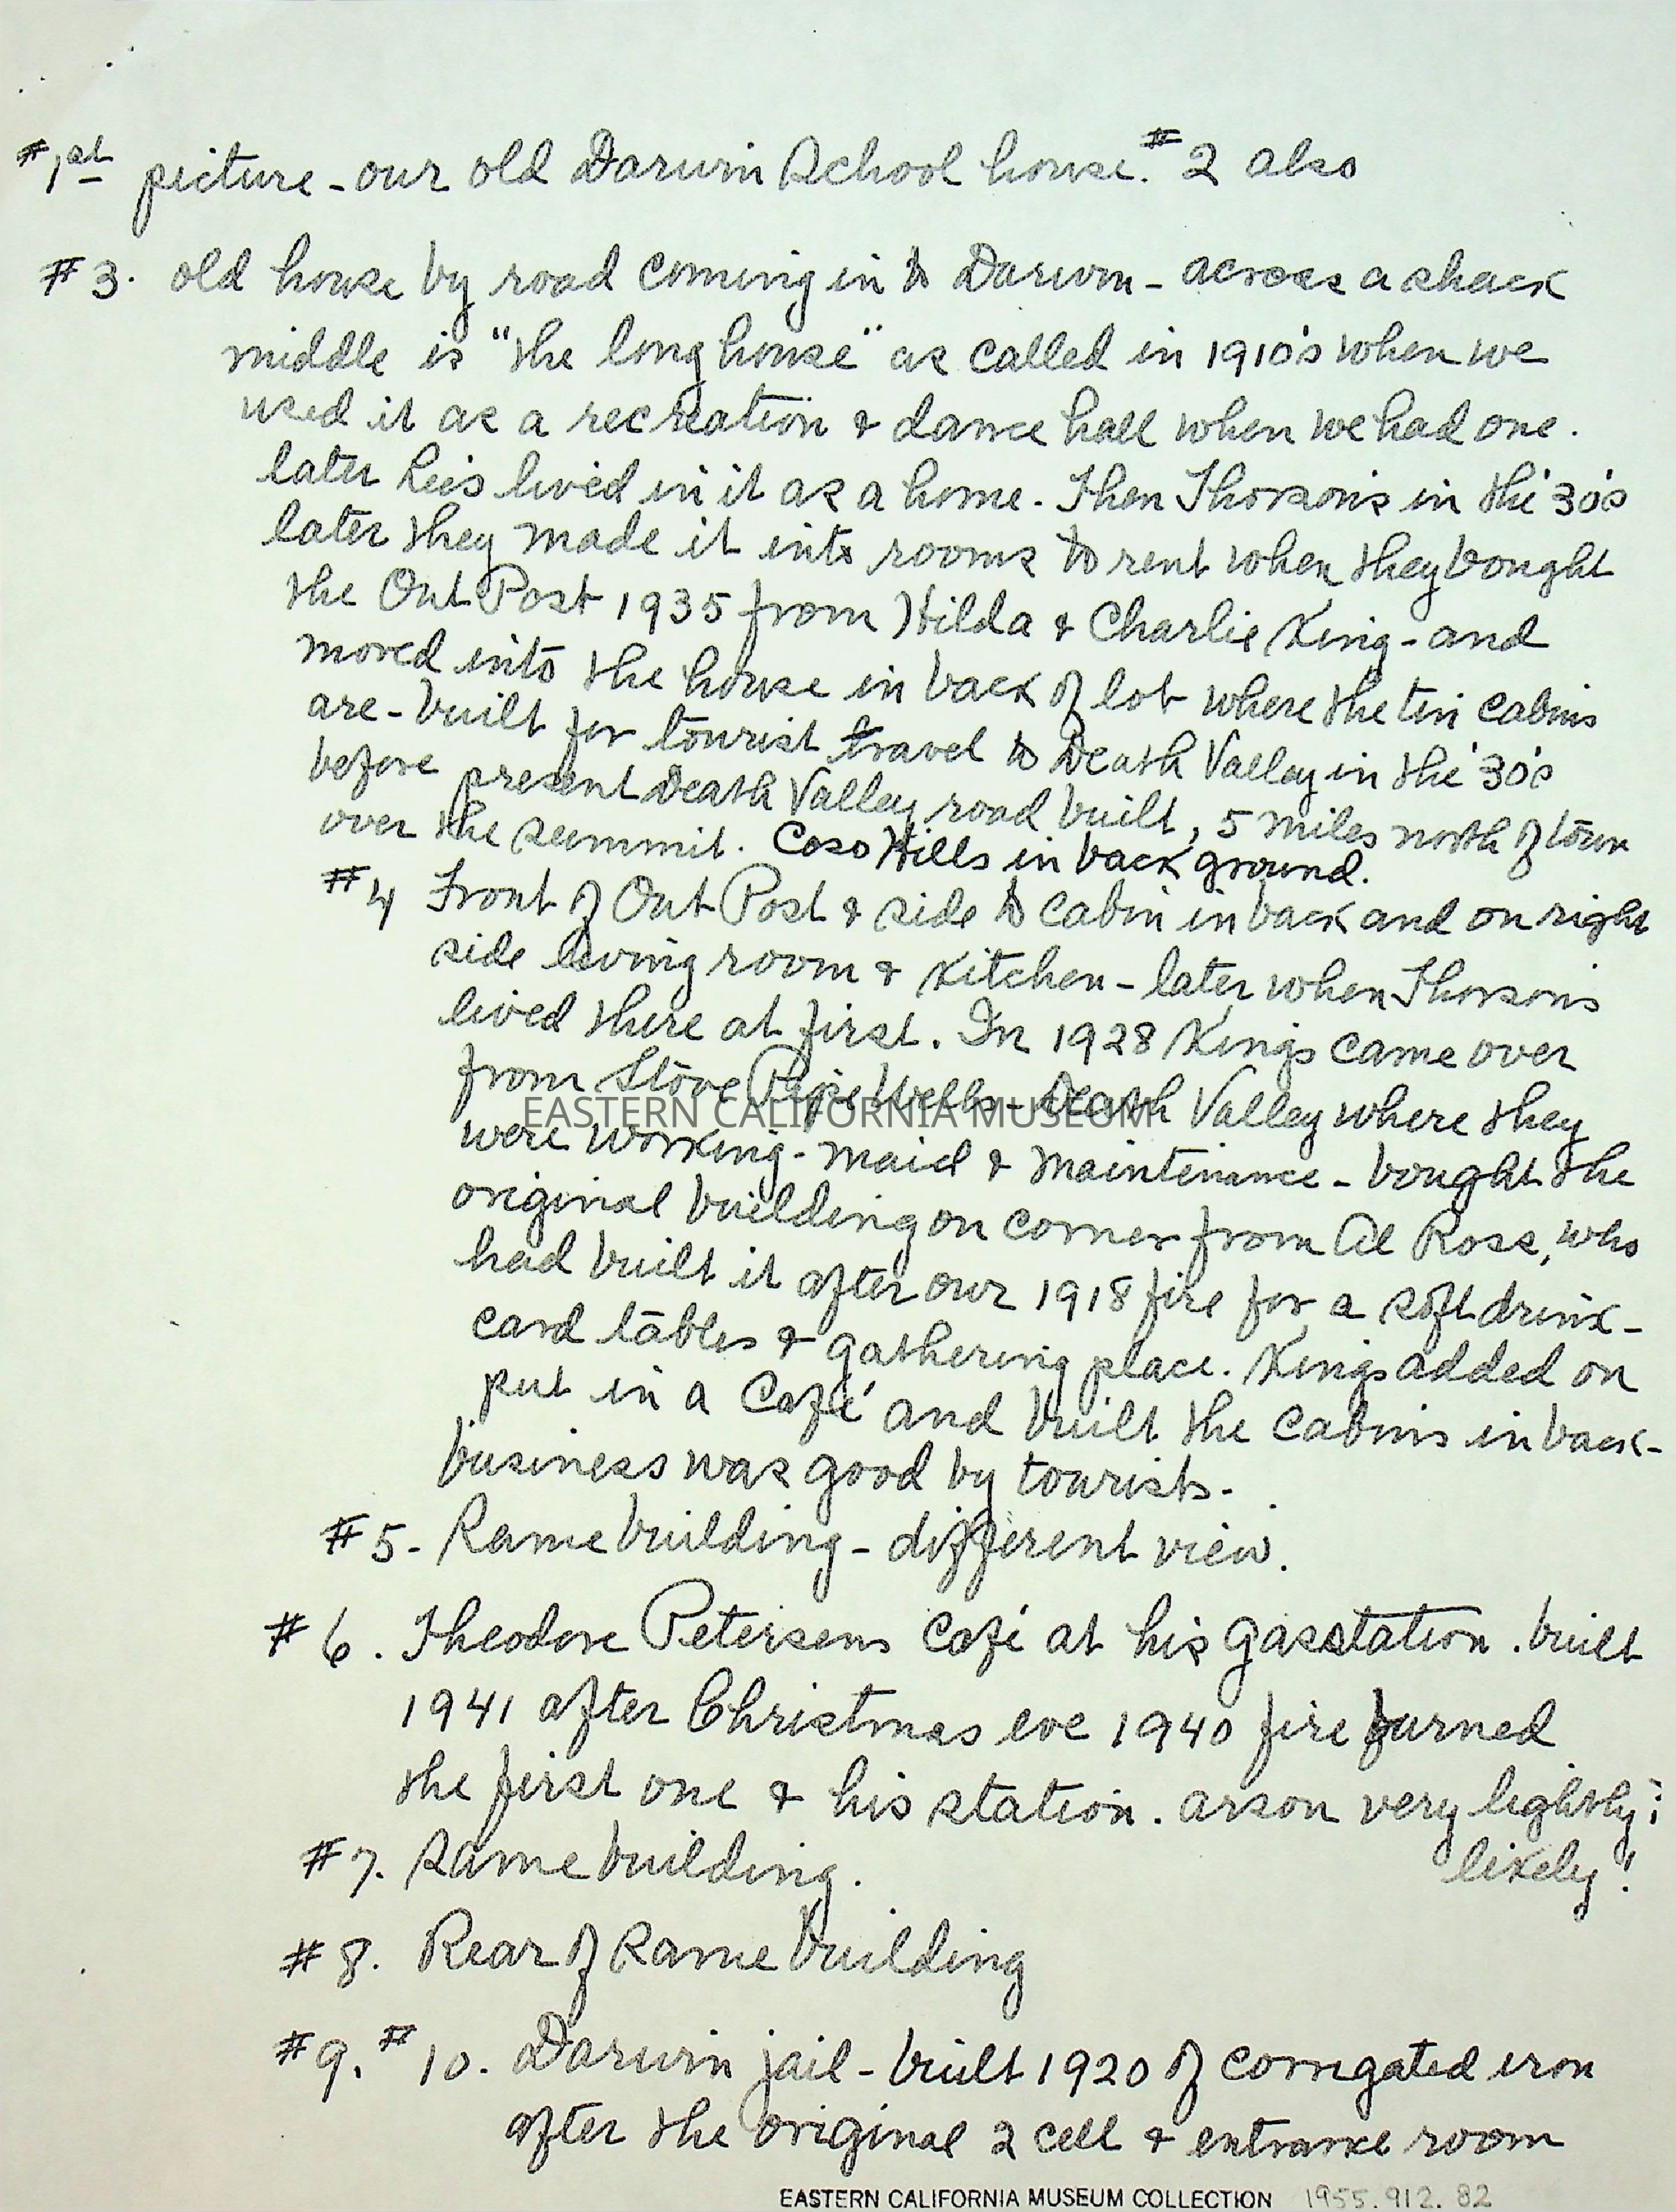 #1st picture - our old Darwin School house. #2 also
#3. old house by road coming in to Darwin - across a shack
middle is "the long house" as called in 1910's when we
used it as a recreation & dance hall when we had one.
later Lee's lived in it as a home. Then Thorson's in the '30's
later they made it into rooms to rent when they bought
the Out Post 1935 from Hilda & Charlie King - and
moved into the house in back of lot where the tin cabins
are - built for tourist travel to Death Valley in the '30's
before present Death Valley road built, 5 miles north of town
over the summit. Coso Hills in back ground.
#4 Front of Out Post & side to cabin in back and on right
side living room & kitchen - later when Thorsons
lived there at first. In 1928 Kings came over
from Stove Pipe Wells - Death Valley where they
EASTERN CALIFORNIA MUSEUM
were working - maid & maintenance - bought the
original building on corner from Al Ross, who
had built it after our 1918 fire for a soft drink -
card tables & gathering place. Kings added on
put in a Café and built the cabins in back -
business was good by tourists.
#5 - Same building - different view.
#6. Theodore Petersens Café at his gasstation. built
1941 after Christmas eve 1940 fire burned
the first one & his station. arson very lightly!
likely!
#7. Same building.
#8. Rear of same building
#9. #10. Darwin jail - built 1920 of corrgated iron
after the original 2 cell & entrance room
EASTERN CALIFORNIA MUSEUM COLLECTION 1955.912.82